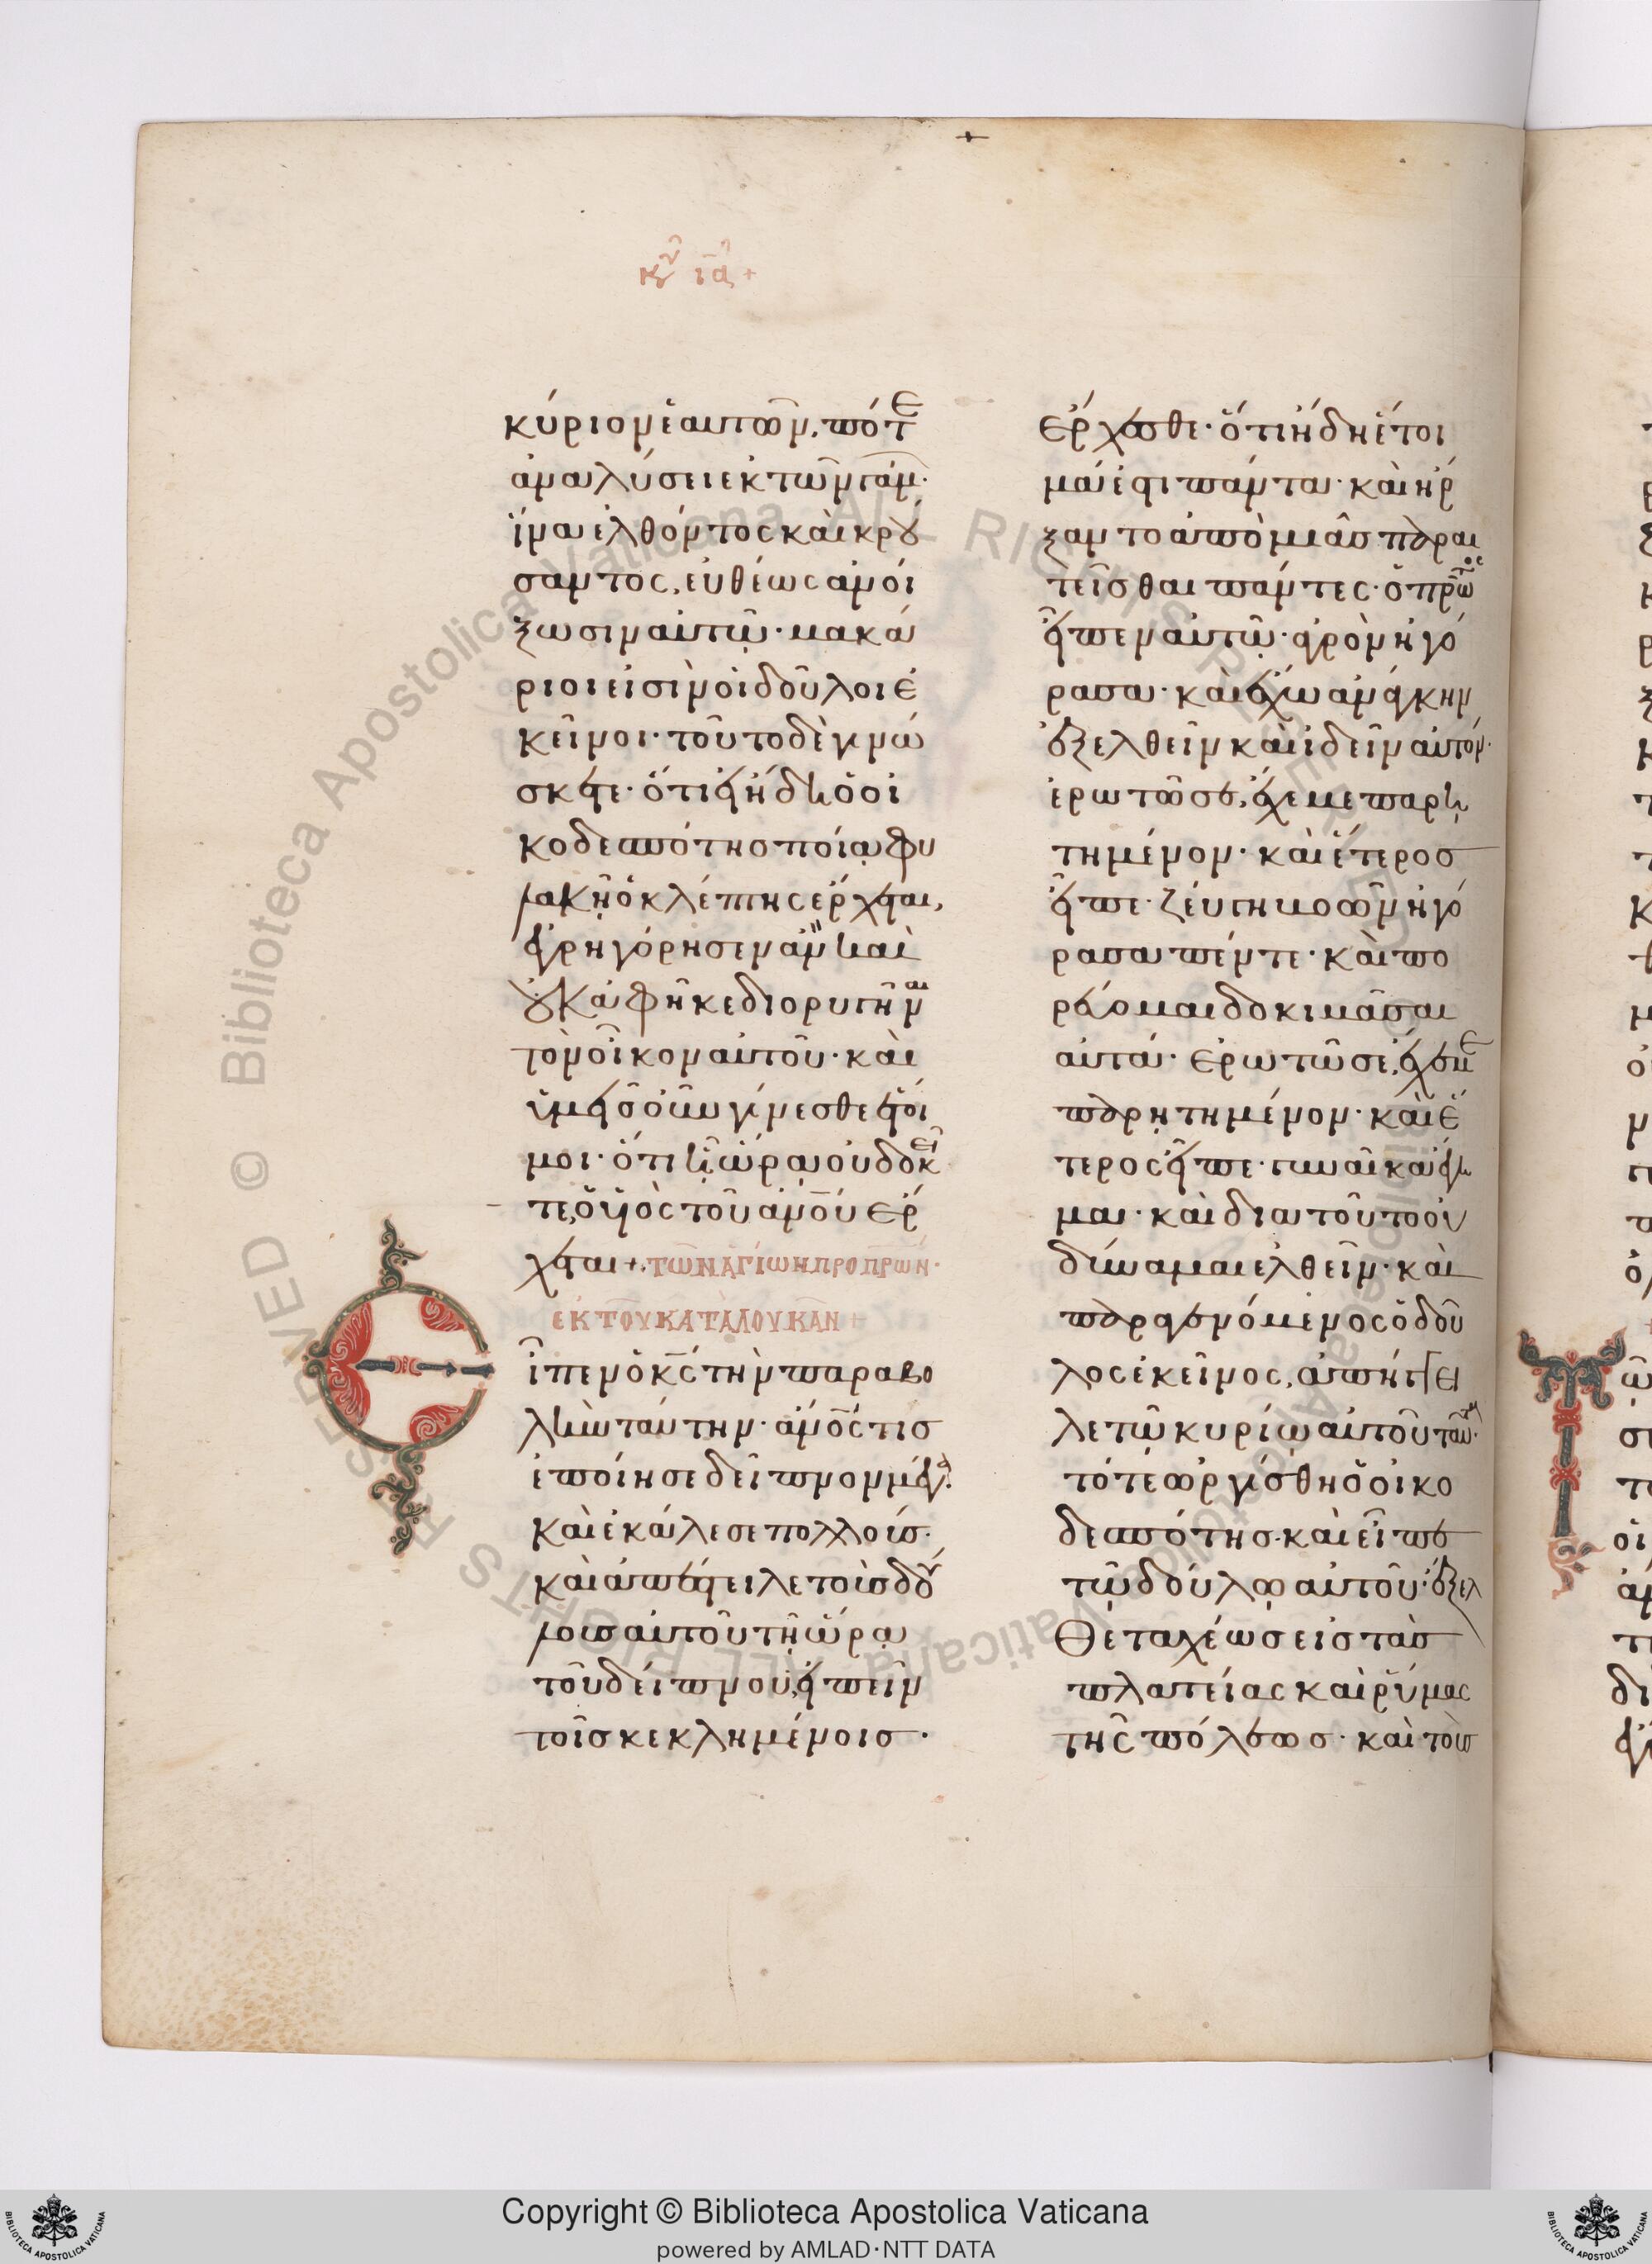 κυ ια +
κύριον ἑαυτῶν, πότε
ἀναλύσει ἐκ τῶν γάμ·
ἵνα ἐλθόντος καὶ κρού
σαντος, εὐθέως ἀνοί
ξωσιν αὐτῷ· μακά
ριοι εἰσὶν οἱ δοῦλοι ἐ
κεῖνοι· τοῦτο δὲ γινώ
σκετε· ὅτι εἰ ἤδη ὁ οἰ
κοδεσπότης ποίᾳ φυ
λακῇ ὁ κλέπτης ἔρχεται,
ἐγρηγόρησεν ἂν καὶ
οὐκ ἀφῆκε διορυγῆναι
τὸν οἶκον αὐτοῦ· καὶ
ὑμεῖς οὖν γίνεσθε ἕτοι
μοι· ὅτι ᾗ ὥρᾳ οὐ δοκεῖ
τε, ὁ υἱὸς τοῦ ἀνου ἔρ
χεται +. ΤΩΝ ΑΓΙΩΝ ΠΡΟΠΡΩΝ·
ΕΚ ΤΟΥ ΚΑΤΑ ΛΟΥΚΑΝ +
Εἶπεν ὁ κς τὴν παραβο
λὴν ταύτην· ἀνος τις
ἐποίησε δεῖπνον μέγα.
καὶ ἐκάλεσε πολλούς·
καὶ ἀπέστειλε τοὺς δού
λους αὐτοῦ τῇ ὥρᾳ
τοῦ δείπνου, εἰπεῖν
τοῖς κεκλημένοις·
ἔρχεσθε· ὅτι ἤδη ἕτοι
μά ἐστι πάντα· καὶ ἤρ
ξαντο ἀπὸ μιᾶς παραι
τεῖσθαι πάντες· ὁ πρῶτος
εἶπεν αὐτῷ· ἀγρὸν ἠγό
ρασα· καὶ ἔχω ἀνάγκην
ἐξελθεῖν καὶ ἰδεῖν αὐτόν·
ἐρωτῶ σε, ἔχε με παρῃ
τημένον· καὶ ἕτερος
εἶπε· ζεύγη βοῶν ἠγό
ρασα πέντε· καὶ πο
ρεύομαι δοκιμᾶσαι
αὐτά· ἐρωτῶ σε, ἔχε με
παρῃτημένον· καὶ ἕ
τερος εἶπε· γυναῖκα ἔγη
μα· καὶ διὰ τοῦτο οὐ
δύναμαι ἐλθεῖν· καὶ
παραγενόμενος ὁ δοῦ
λος ἐκεῖνος, ἀπήγγει
λε τῷ κυρίῳ αὐτοῦ ταῦτα·
τότε ὀργισθεὶς ὁ οἰκο
δεσπότης· καὶ εἶπε
τῷ δούλῳ αὐτοῦ· ἔξελ
θε ταχέως εἰς τὰς
πλατείας καὶ ῥύμας
τῆς πόλεως· καὶ τοὺς
© Biblioteca Apostolica Vaticana ALL RIGHTS RESERVED
Copyright © Biblioteca Apostolica Vaticana
powered by AMLAD·NTT DATA
BIBLIOTECA APOSTOLICA VATICANA
BIBLIOTECA APOSTOLICA VATICANA